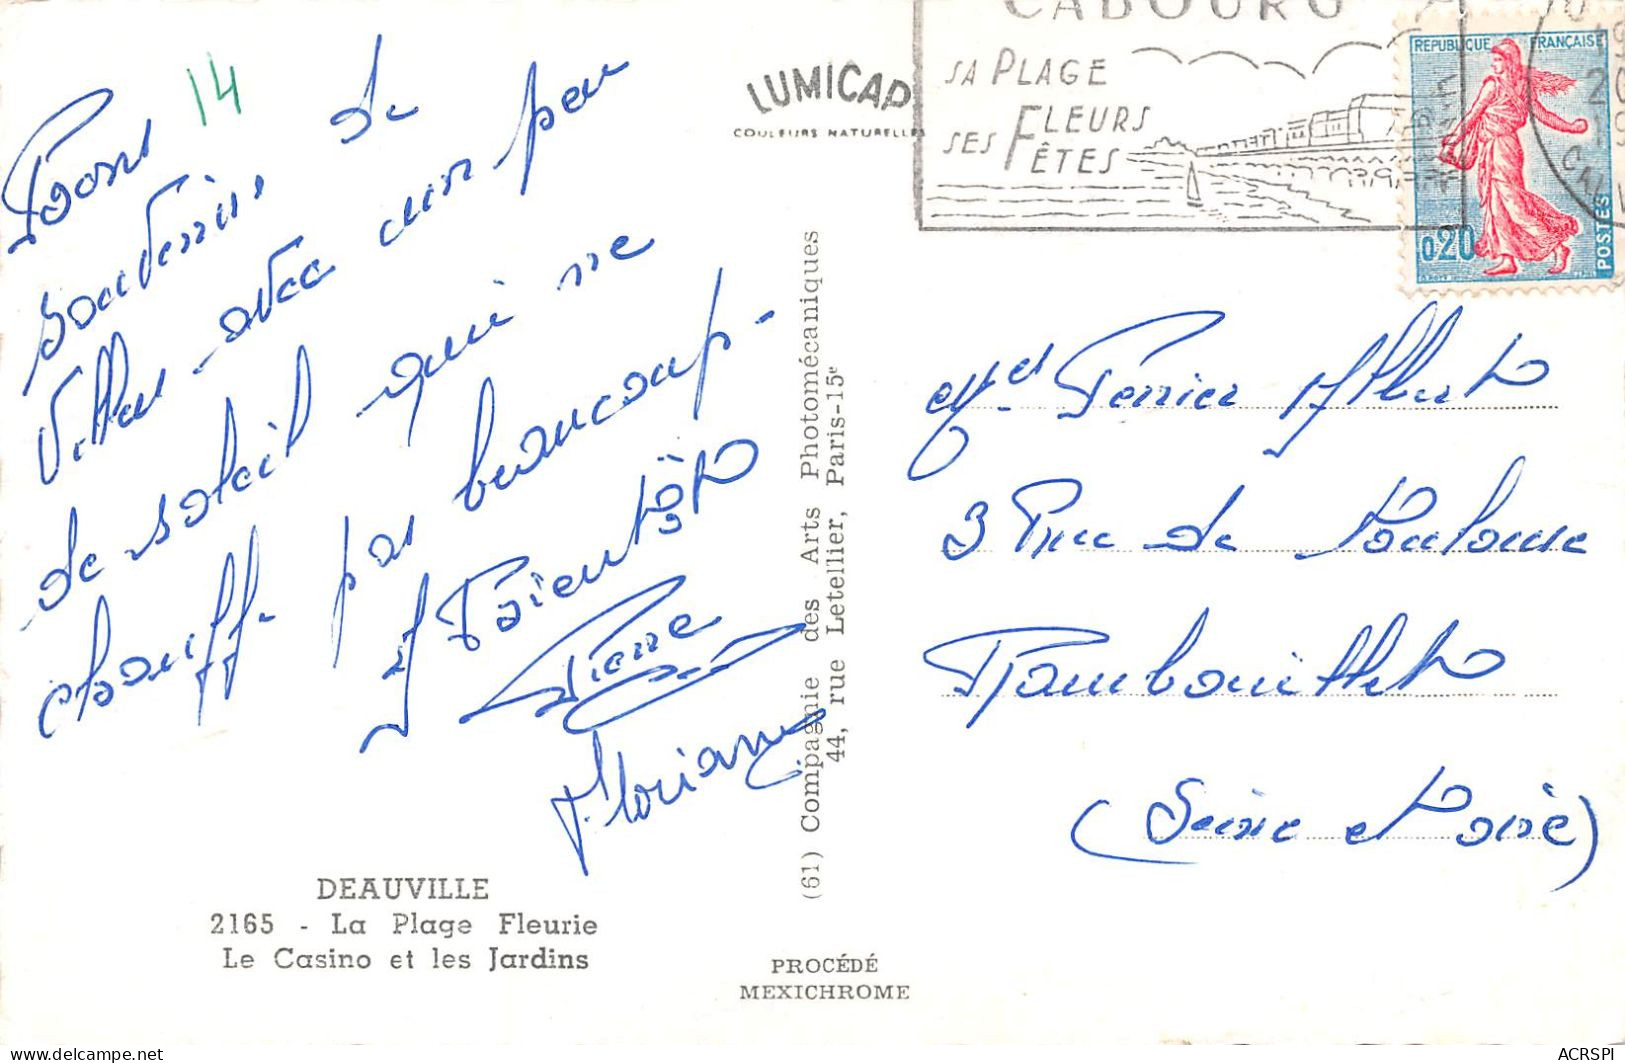 14
Bons
souvenirs de
Villers avec un peu
de soleil qui ne
chauff- pas beaucoup-
A Bientôt
Pierre
Floriane
DEAUVILLE
2165 - La Plage Fleurie
Le Casino et les Jardins
LUMICAP
COULEURS NATURELLES
(61) Compagnie des Arts Photomécaniques
44, rue Letellier, Paris-15e
PROCÉDÉ
MEXICHROME
CABOURG
SA PLAGE
SES FLEURS
FÊTES
REPUBLIQUE FRANÇAISE
0,20
POSTES
CALV
Perrier Albert
3 Rue de Toulouse
Rambouillet
(Seine et Oise)
ACRSPI